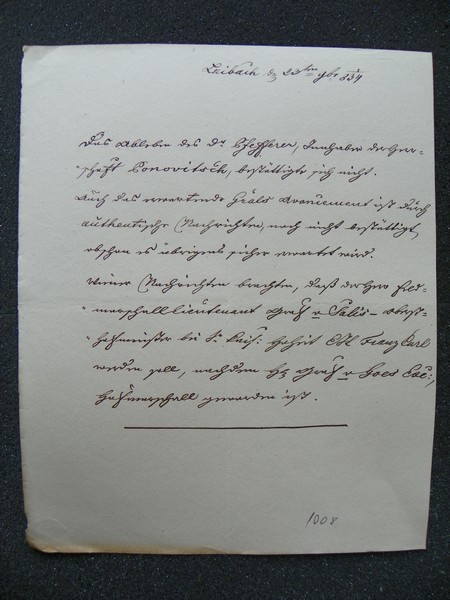 Laibach d 23ten 9br 834
Das Ableben des Dr Pfefferer, Innhaber der Herr-
-schaft Ponovitsch, bestättigte sich nicht.
Auch das erwartende Grals Avancement ist durch
authentische Nachrichten, noch nicht bestättigt,
obschon es übrigens sicher erwartet wird.
Wiener Nachrichten brachten, daß der Herr Feld-
-marschalllieutenant Graf v Salis – Oberst-
-hofmeister bei Sr Kais: Hoheit EH Franz Carl
werden soll, nachdem H Graf v Goes Exc:,
Hofmarschall geworden ist.
1008